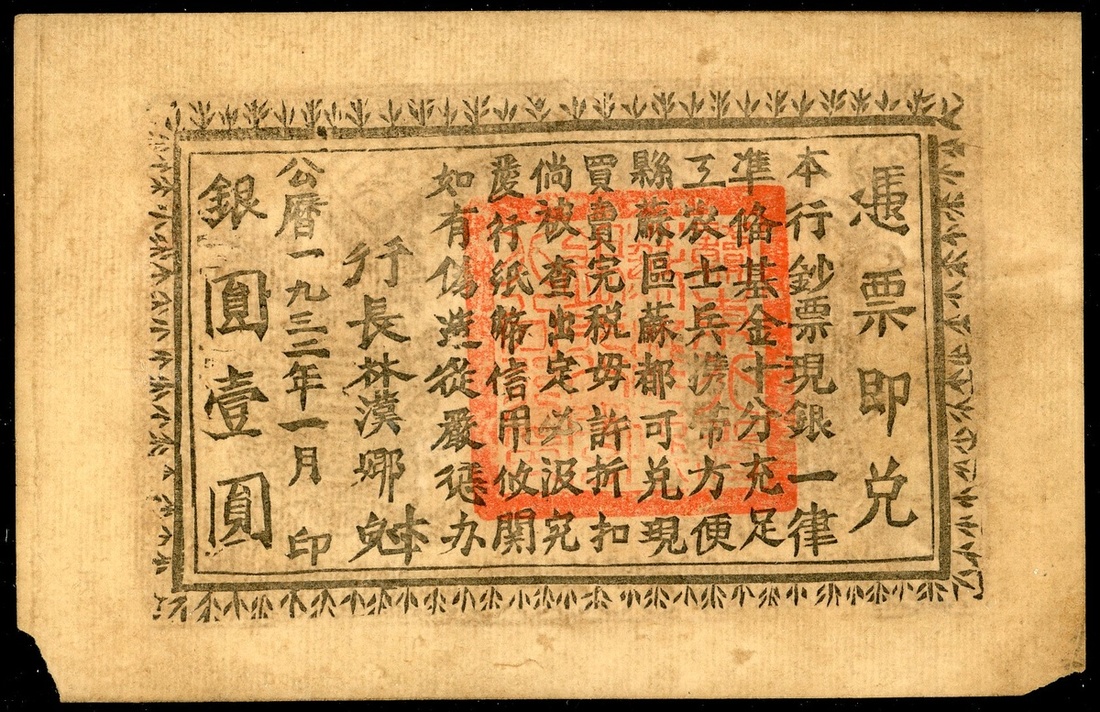 憑票即兑
本行鈔票現銀一律
準俻基金十分充足
工农士兵携帶方便
縣蘇區蘇都可兑現
買賣完税毋許折扣
倘被查出定必汲究
爱行纸幣信用攸関
如有偽造從嚴惩办
行長林漢
公曆一九三三年一月 印
銀圓壹圓